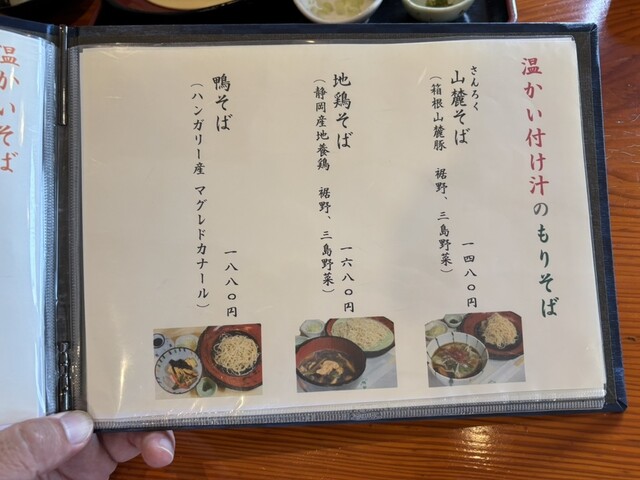 温かい付け汁のもりそば
さんろく
山麓そば
（箱根山麓豚　裾野、三島野菜）
一四八〇円
地鶏そば
（静岡産地養鶏　裾野、三島野菜）
一六八〇円
鴨そば
（ハンガリー産　マグレドカナール）
一八八〇円
温かいそば